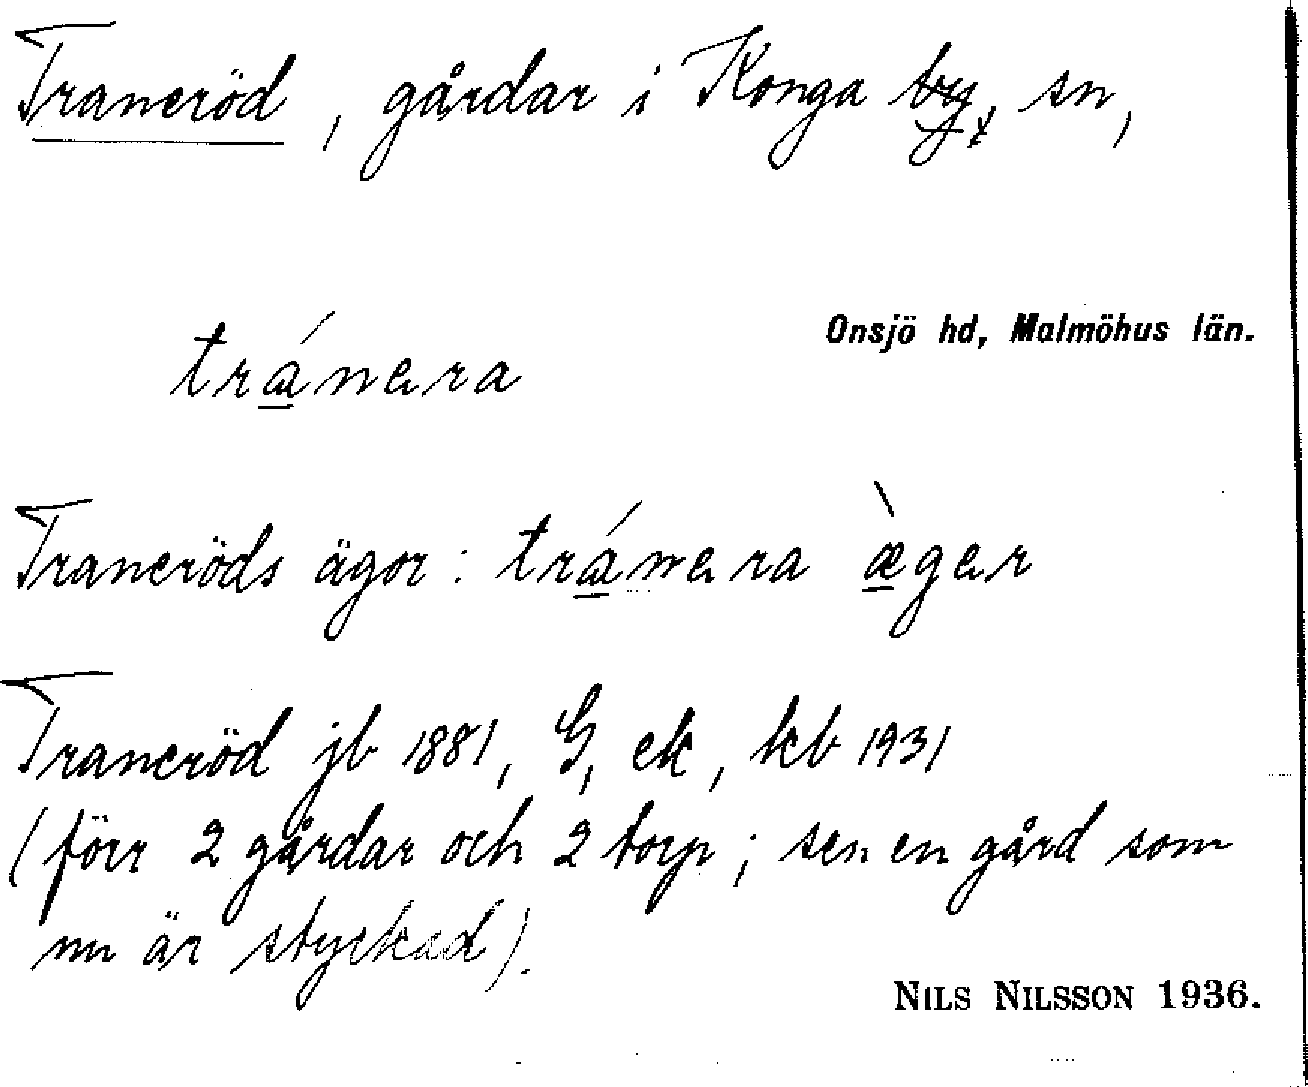 Traneröd, gårdar i Konga by, sn,
Onsjö hd, Malmöhus län.
tránara
Traneröds ägor: tránara ægar
Traneröd jb 1881, G, ek, kb 1931
(förr 2 gårdar och 2 torp; sen en gård som
nu är styckad).
NILS NILSSON 1936.